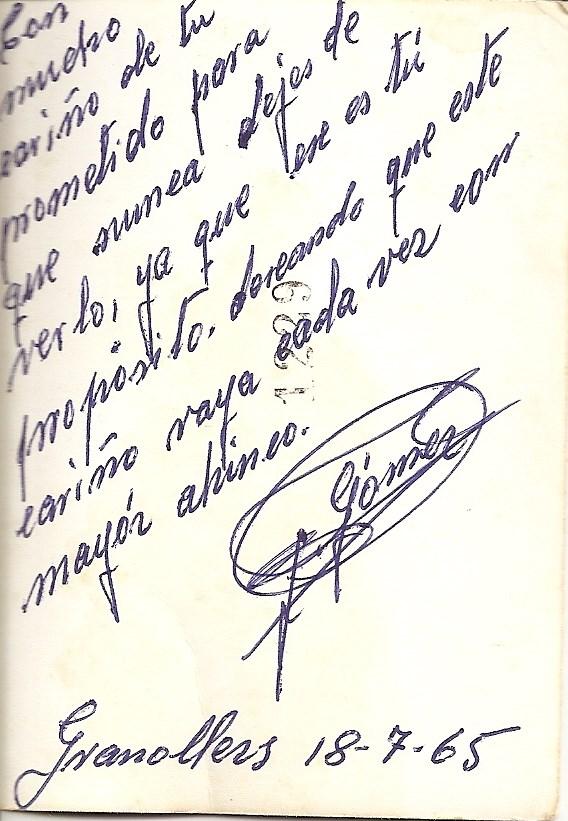 Con
mucho
cariño de tu
prometido para
que nunca dejes de
verlo, ya que ese es tú
propósito. deseando que este
cariño vaya cada vez con
mayór ahinco.
1229
Gómez
Granollers 18-7-65